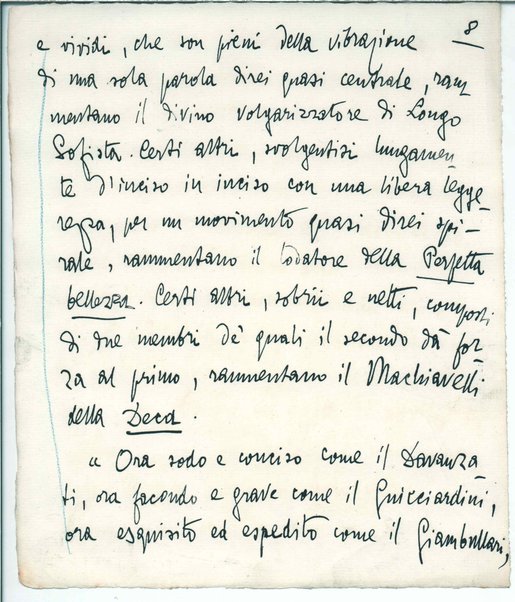 8
e vividi, che son pieni della vibrazione
di una sola parola direi quasi centrale, ram
mentano il divino volgarizzatore di Longo
Sofista. Certi altri, svolgentisi lungamen
te d'inciso in inciso con una libera legge
rezza, per un movimento quasi direi spi-
rale, rammentano il lodatore della Perfetta
bellezza. Certi altri, sobrii e netti, composti
di due membri de' quali il secondo dà for
za al primo, rammentano il Machiavelli
della Deca.
"Ora sodo e conciso come il Davanza
ti, ora facondo e grave come il Guicciardini,
ora esquisito ed espedito come il Giambullari,